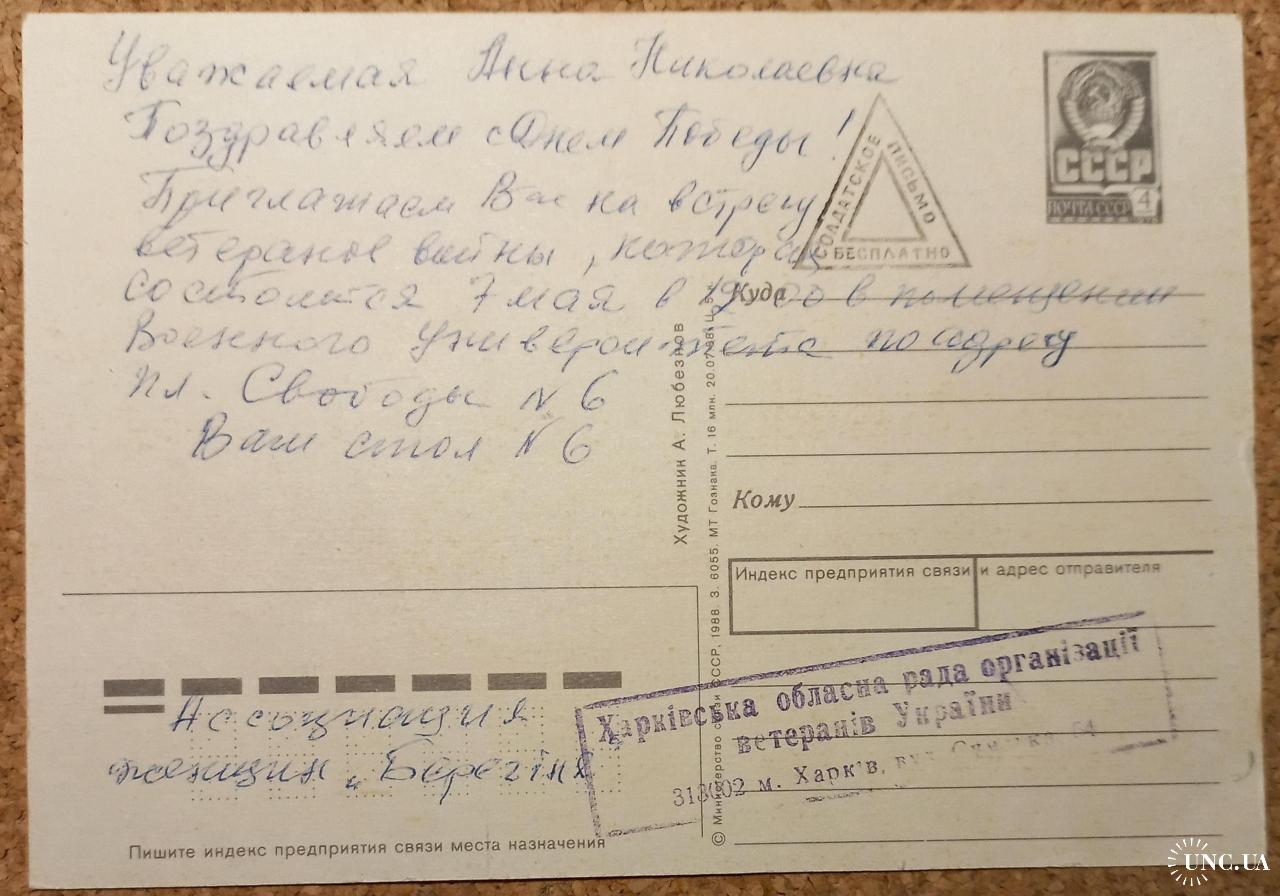 Уважаемая Анна Николаевна
Поздравляем с Днем Победы!
Приглашаем Вас на встречу
ветеранов войны, которая
состоится 7 мая в 12 00 в помещении
Военного Университета по адресу
пл. Свободы N 6
Ваш стол N 6
Ассоциация
женщин „Берегіня"
Пишите индекс предприятия связи места назначения
Художник А. Любезнов
© Министерство связи СССР, 1988. З. 6055. МТ Гознака. Т. 16 млн. 20.07.88. Ц. 5 к.
СОЛДАТСКОЕ ПИСЬМО
БЕСПЛАТНО
СССР
ПОЧТА СССР 4
Куда
Кому
Индекс предприятия связи и адрес отправителя
Харківська обласна рада організації
ветеранів України
м. Харків, вул.
UNC.UA